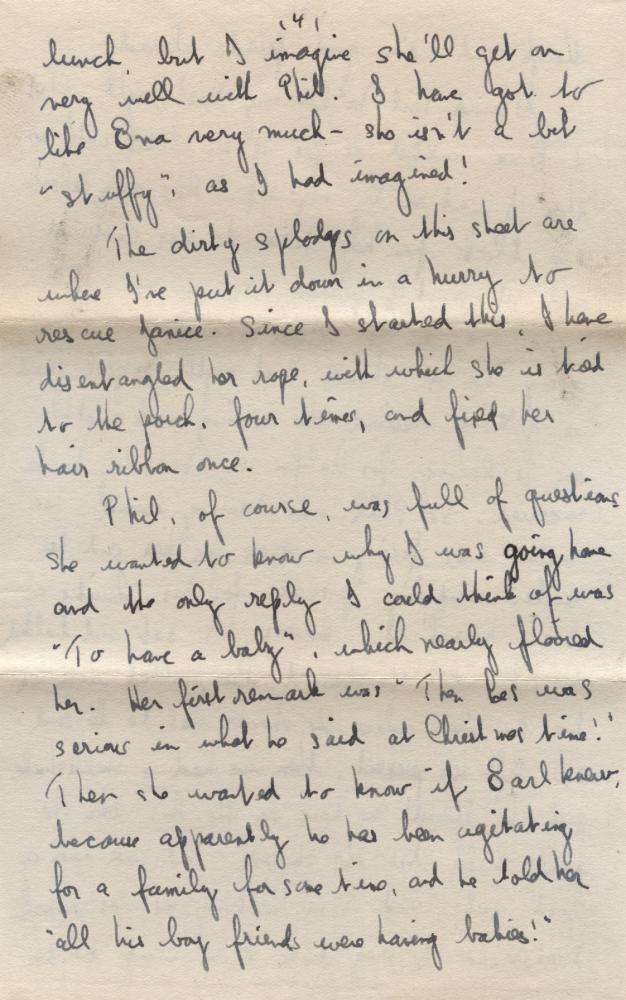 (4)
lunch, but I imagine she'll get on
very well with Phil. I have got to
like Ena very much - she isn't a bit
"stuffy", as I had imagined!
The dirty splodges on this sheet are
where I've put it down in a hurry to
rescue Janice. Since I started this, I have
disentangled her rope, with which she is tied
to the porch, four times, and fixed her
hair ribbon once.
Phil, of course, was full of questions
She wanted to know why I was going home
and the only reply I could think of was
"To have a baby", which nearly floored
her. Her first remark was "Then Les was
serious in what he said at Christmas time!"
Then she wanted to know if Earl knew,
because apparently he has been agitating
for a family for some time, and he told her
"all his boy friends were having babies!"